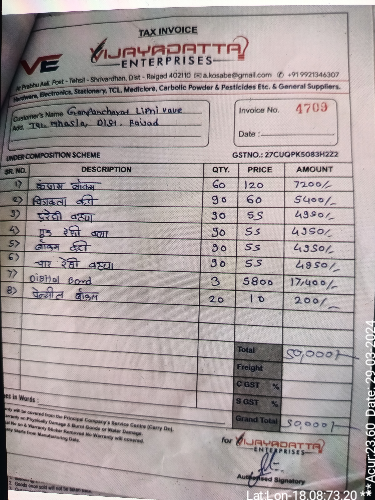 TAX INVOICE
VE VIJAYADATTA
ENTERPRISES
At Prabhu Aali, Post - Tehsil - Shrivardhan, Dist - Raigad 402110 a.kosabe@gmail.com +919921346307
Hardware, Electronics, Stationery, TCL, Mediclore, Carbolic Powder & Pesticides Etc. & General Suppliers.
Customer's Name Grampanchayat
Add. Tal. Mhasla, Dist. Raigad
Invoice No. 4709
Date :
UNDER COMPOSITION SCHEME
GSTNO.: 27CUQPK5083H2Z2
SR. NO. DESCRIPTION QTY. PRICE AMOUNT
1) कंपास बॉक्स 60 120 7200/-
2) चित्रकला वही 90 60 5400/-
3) 90 55 4950/-
4) 90 55 4950/-
5) 90 55 4950/-
6) चार रेघी वह्या 90 55 4950/-
7) Digital Board 3 5800 17400/-
8) पेन्सील बॉक्स 20 10 200/-
Total 50,000/-
Freight
C GST %
S GST %
Grand Total 50,000/-
in Words :
for VIJAYADATTA
ENTERPRISES
Authorised Signatory
Lat Lon-18.08:73.20 ** Acur:23.60 Date: 29-03-2024